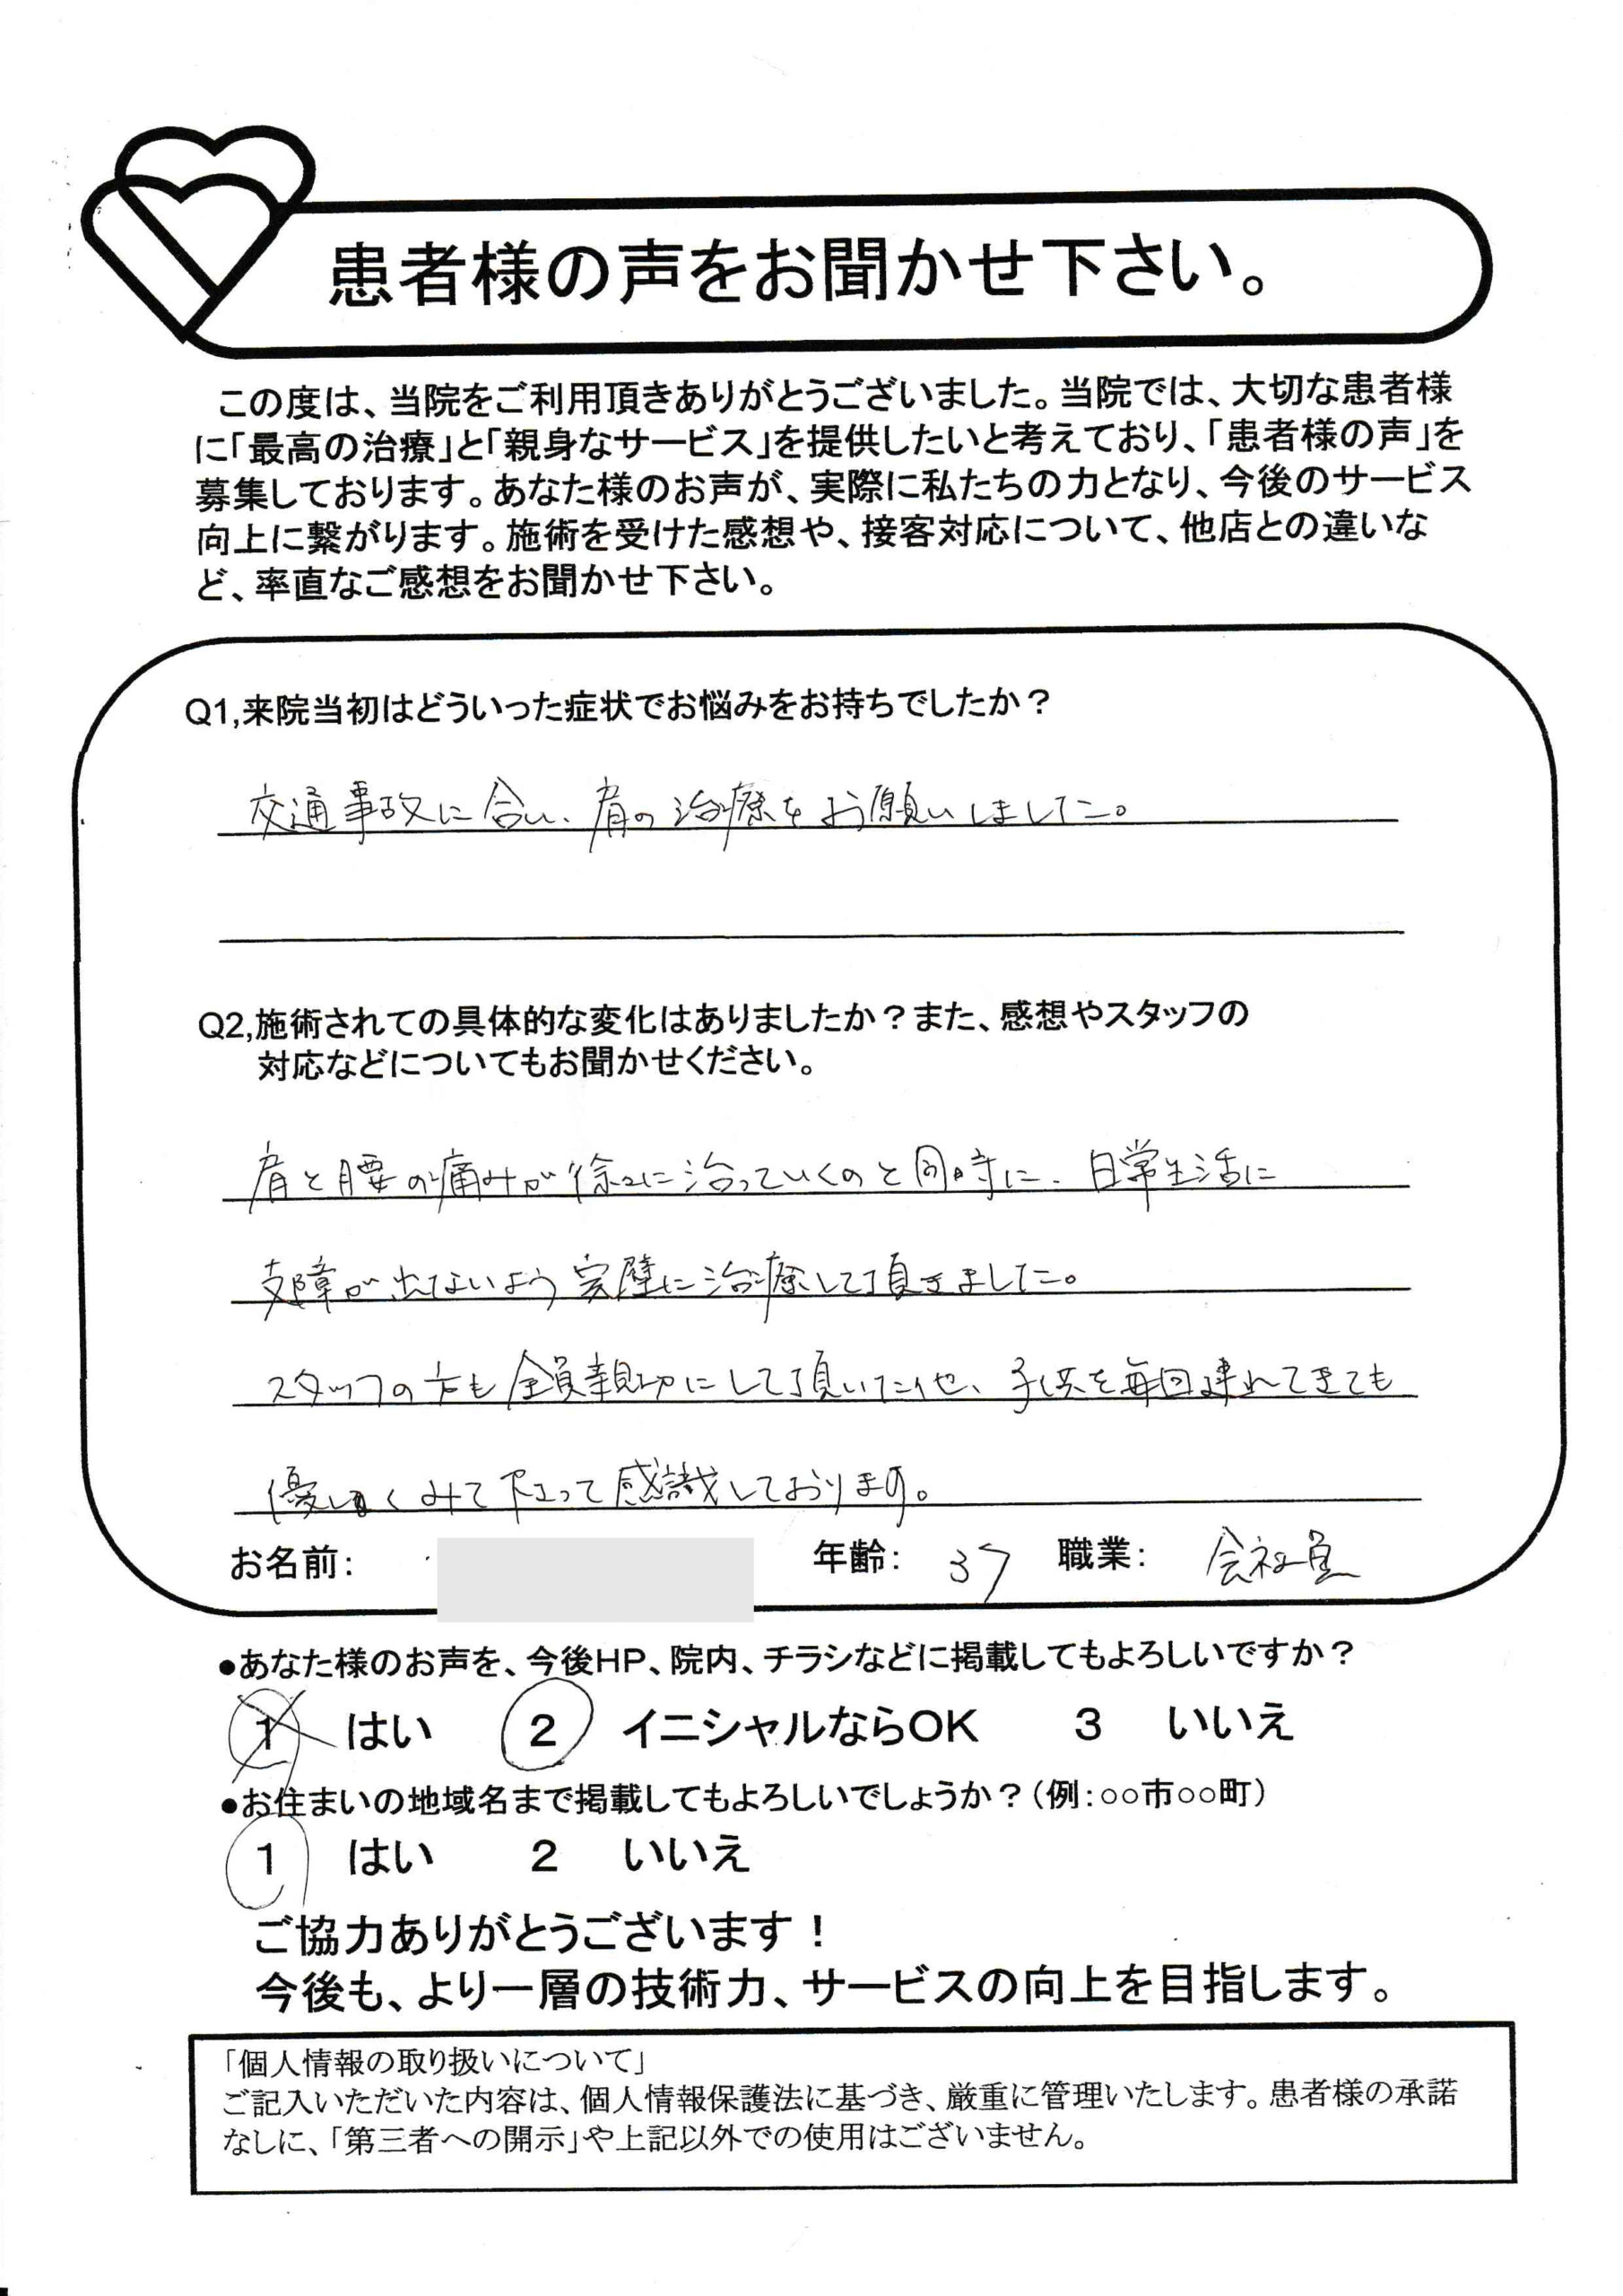 患者様の声をお聞かせ下さい。
この度は、当院をご利用頂きありがとうございました。当院では、大切な患者様
に「最高の治療」と「親身なサービス」を提供したいと考えており、「患者様の声」を
募集しております。あなた様のお声が、実際に私たちの力となり、今後のサービス
向上に繋がります。施術を受けた感想や、接客対応について、他店との違いな
ど、率直なご感想をお聞かせ下さい。
Q1,来院当初はどういった症状でお悩みをお持ちでしたか？
交通事故に合い、肩の治療をお願いしました。
Q2,施術されての具体的な変化はありましたか？また、感想やスタッフの
対応などについてもお聞かせください。
肩と腰の痛みが徐々に治っていくのと同時に、日常生活に
支障が出ないよう完璧に治療して頂きました。
スタッフの方も全員親切にして頂いた他、子供を毎回連れてきても
優しくみて下さって感謝しております。
お名前： 年齢： 37 職業： 会社員
●あなた様のお声を、今後HP、院内、チラシなどに掲載してもよろしいですか？
1 はい 2 イニシャルならOK 3 いいえ
●お住まいの地域名まで掲載してもよろしいでしょうか？（例：○○市○○町）
1 はい 2 いいえ
ご協力ありがとうございます！
今後も、より一層の技術力、サービスの向上を目指します。
「個人情報の取り扱いについて」
ご記入いただいた内容は、個人情報保護法に基づき、厳重に管理いたします。患者様の承諾
なしに、「第三者への開示」や上記以外での使用はございません。